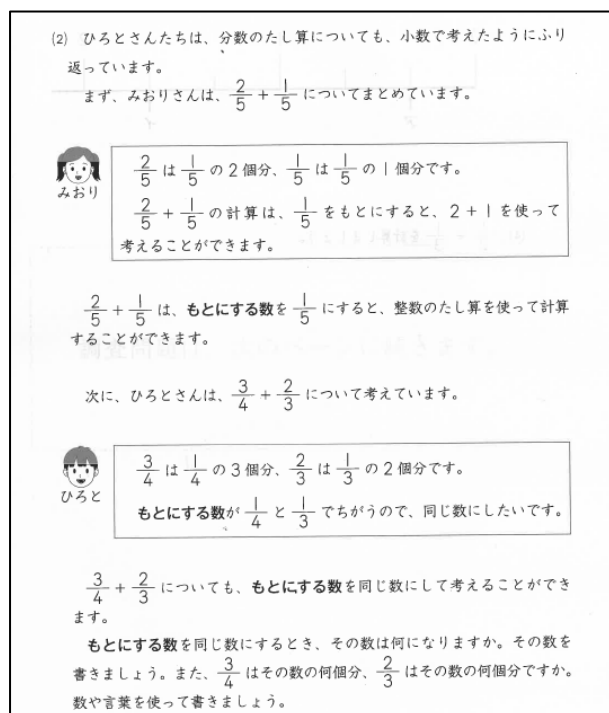 (2) ひろとさんたちは、分数のたし算についても、小数で考えたようにふり
返っています。
まず、みおりさんは、2/5 + 1/5 についてまとめています。
みおり
2/5 は 1/5 の2個分、1/5 は 1/5 の1個分です。
2/5 + 1/5 の計算は、1/5 をもとにすると、2+1を使って
考えることができます。
2/5 + 1/5 は、もとにする数を 1/5 にすると、整数のたし算を使って計算
することができます。
次に、ひろとさんは、3/4 + 2/3 について考えています。
ひろと
3/4 は 1/4 の3個分、2/3 は 1/3 の2個分です。
もとにする数が 1/4 と 1/3 でちがうので、同じ数にしたいです。
3/4 + 2/3 についても、もとにする数を同じ数にして考えることができ
ます。
もとにする数を同じ数にするとき、その数は何になりますか。その数を
書きましょう。また、3/4 はその数の何個分、2/3 はその数の何個分ですか。
数や言葉を使って書きましょう。